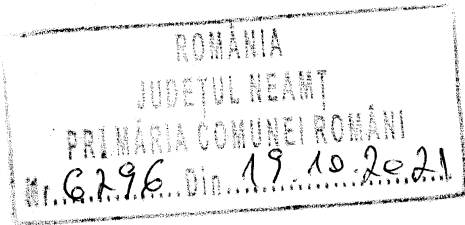 ROMÂNIA
JUDEȚUL NEAMȚ
PRIMĂRIA COMUNEI ROMÂNI
Nr. 6296 Din 19.10.2021